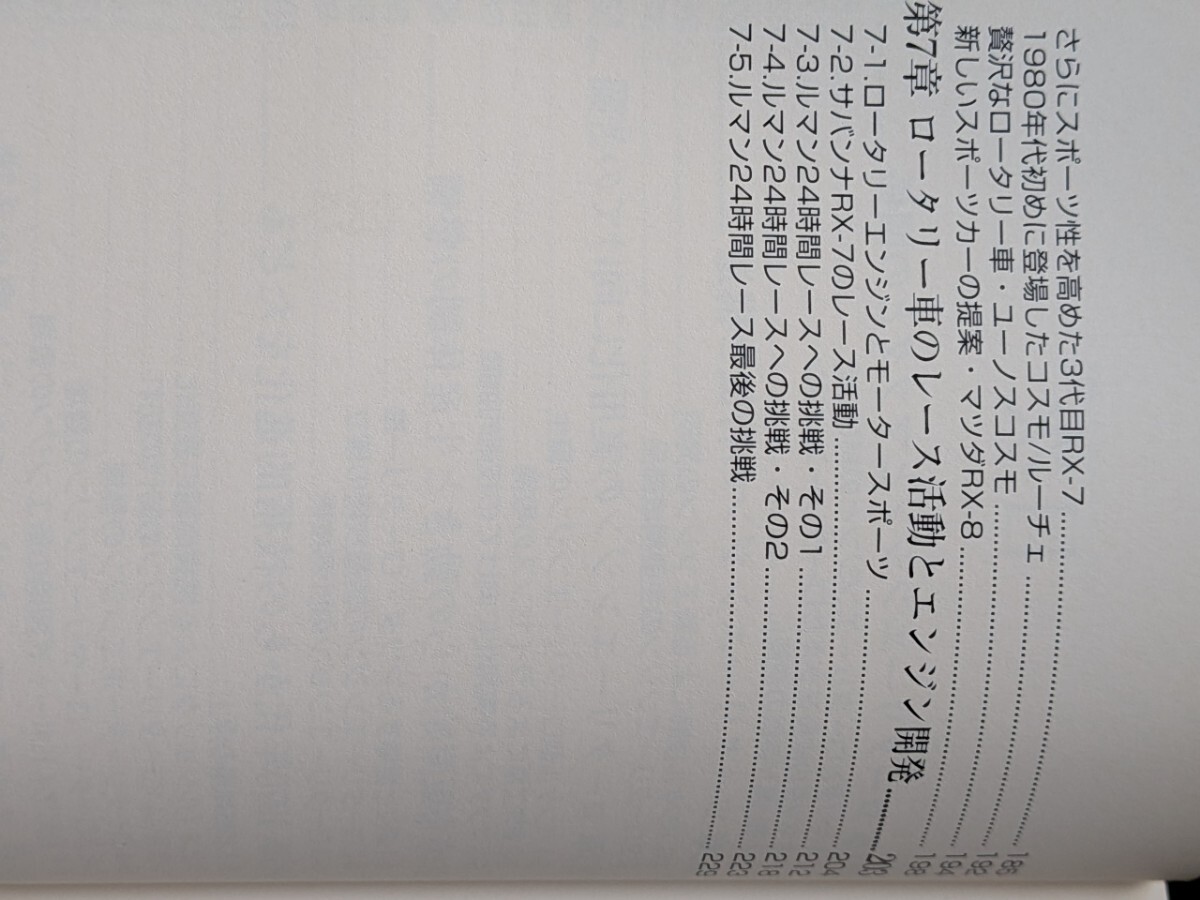 さらにスポーツ性を高めた3代目RX-7 186
1980年代初めに登場したコスモ/ルーチェ 192
贅沢なロータリー車・ユーノスコスモ 194
新しいスポーツカーの提案・マツダRX-8 198
第7章 ロータリー車のレース活動とエンジン開発 203
7-1.ロータリーエンジンとモータースポーツ 204
7-2.サバンナRX-7のレース活動 212
7-3.ルマン24時間レースへの挑戦・その1 218
7-4.ルマン24時間レースへの挑戦・その2 223
7-5.ルマン24時間レース最後の挑戦 229